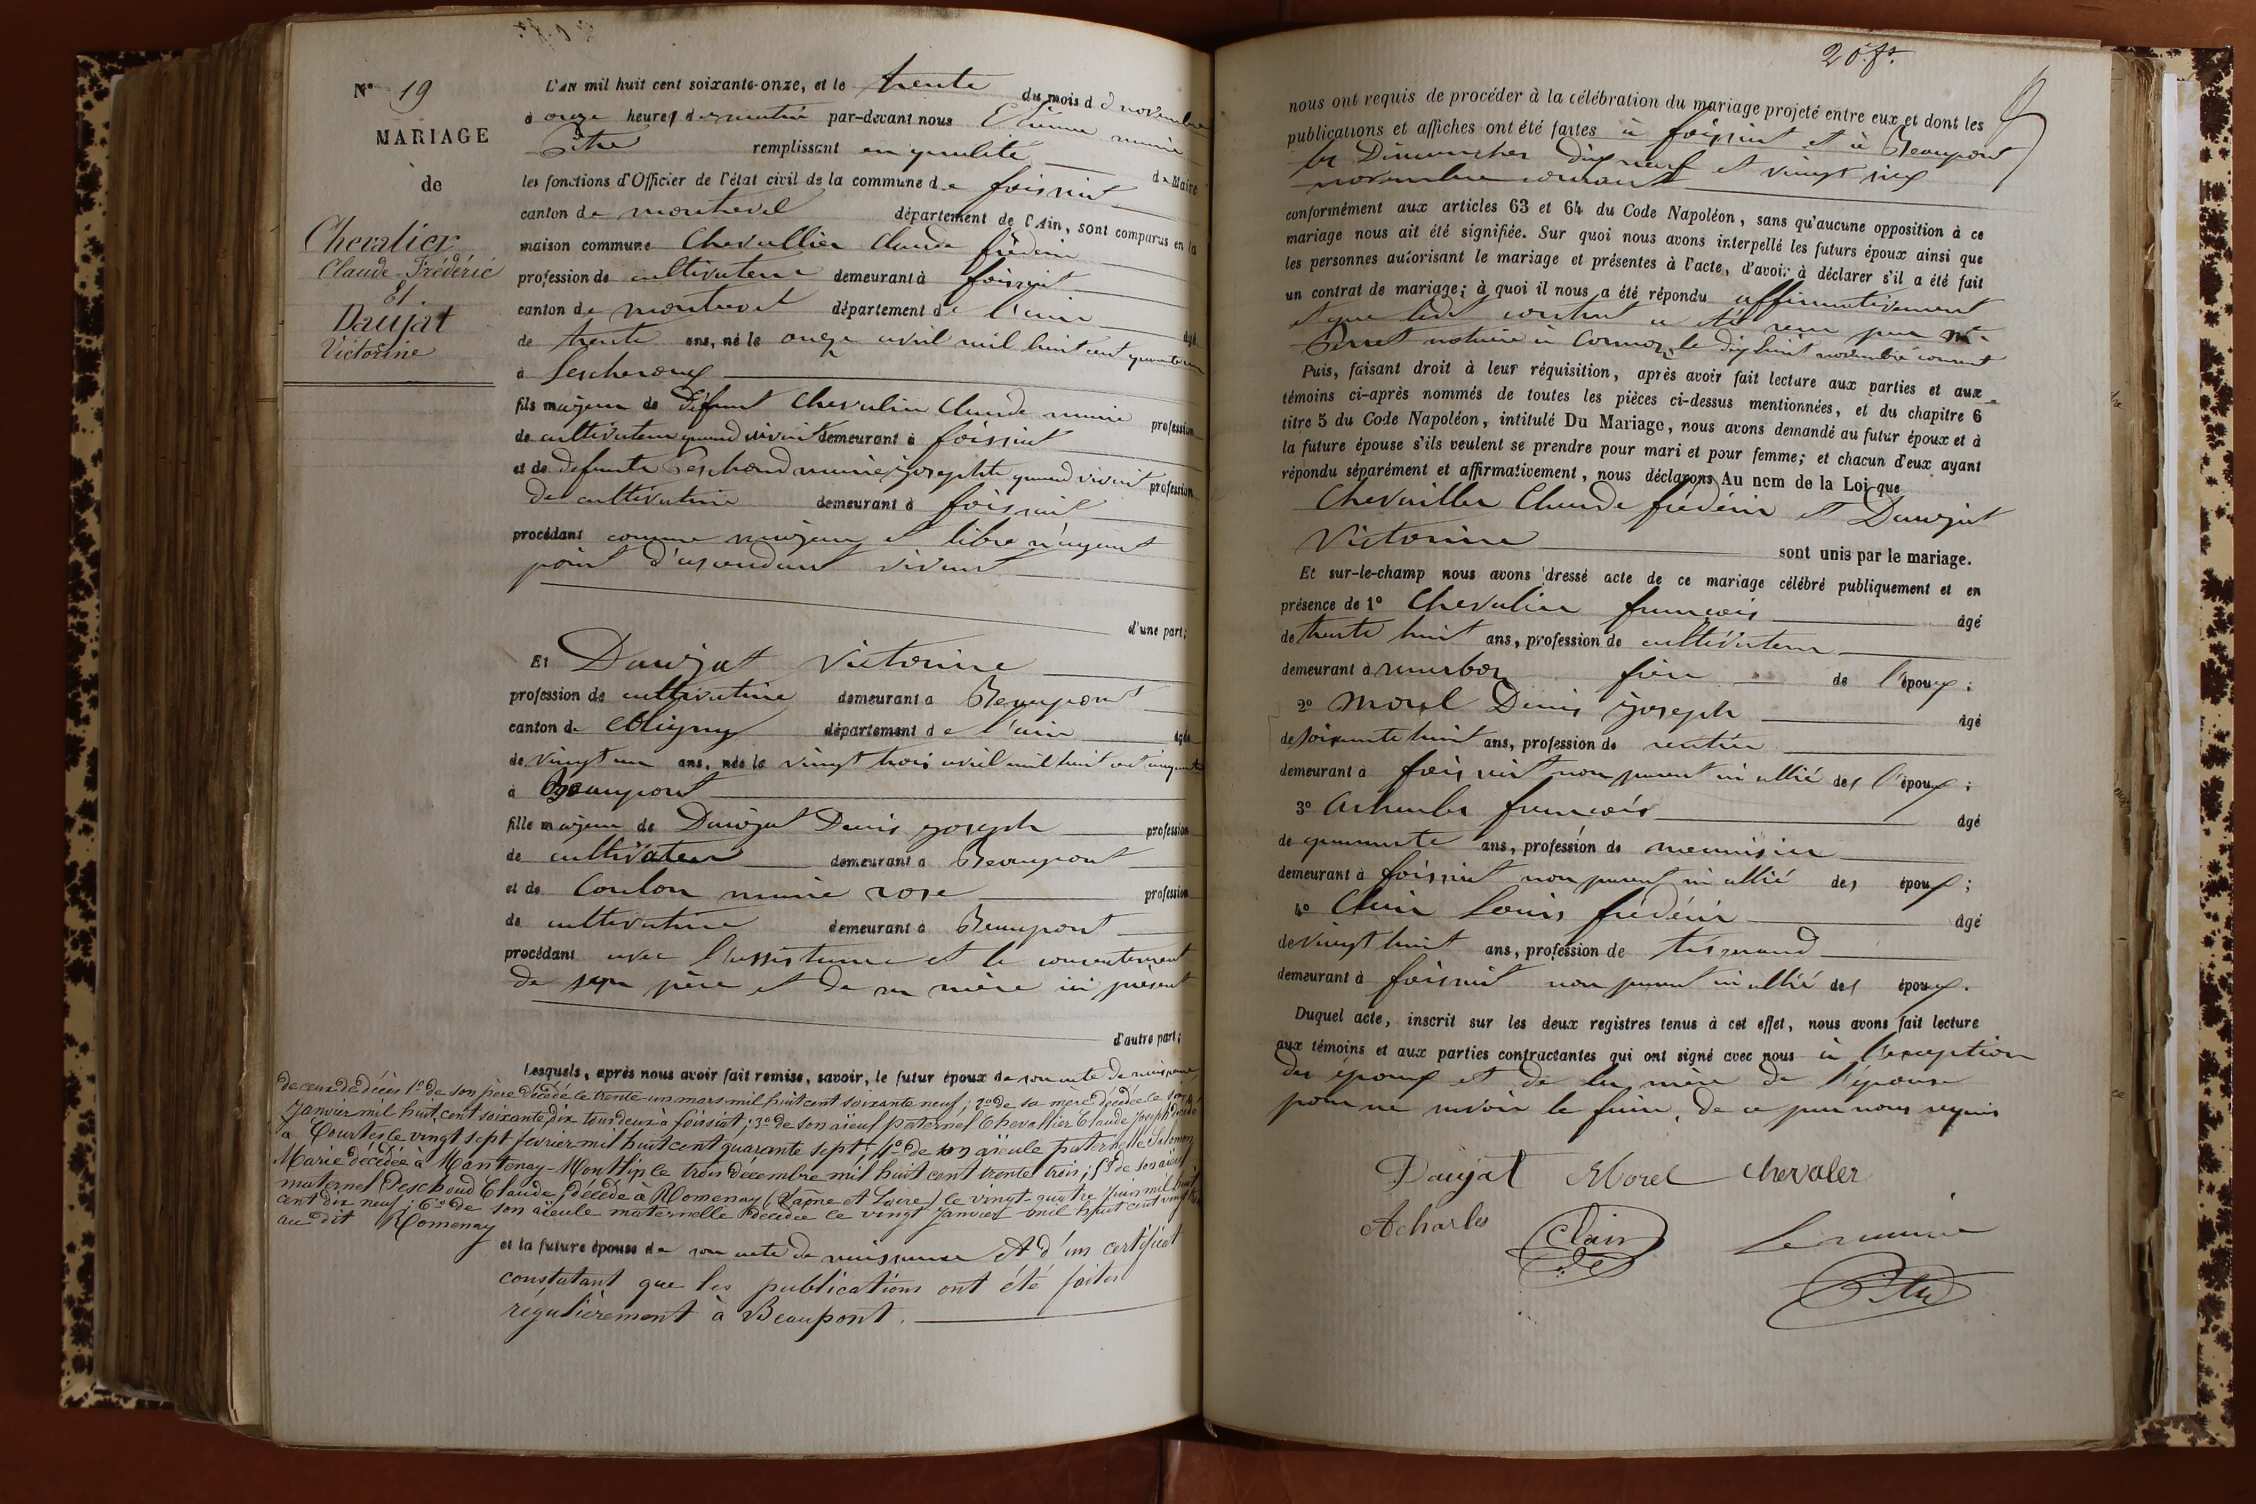 N° 19
MARIAGE
de
Chevalier
Claude-Frédéric
Et
Daujat
Victorine
L'AN mil huit cent soixante-onze, et le trente du mois d e novembre
à onze heures du matin par-devant nous Etienne marie
Pitre remplissant en qualité de Maire
les fonctions d'Officier de l'état civil de la commune de foissiat
canton de montrevel département de l'Ain, sont comparus en la
maison commune Chevallier Claude frédéric
profession de cultivateur demeurant à foissiat
canton de montrevel département de l'ain âgé
de trente ans, né le onze avril mil huit cent quarante un
à Lescheroux
fils majeur de défunt Chevalier Claude marie profession
de cultivateur quand vivait demeurant à foissiat
et de defunte Peschoud marie josephte quand vivait profession
de cultivatrice demeurant à foissiat
procédant comme majeur et libre n'ayant
point d'ascendant vivant
d'une part;
Et Daujat Victorine
profession de cultivatrice demeurant à Beaupont
canton de Coligny département de l'ain âgée
de vingt un ans, née le vingt trois avril mil huit cent cinquante
à Beaupont
fille majeure de Daujat Denis joseph profession
de cultivateur demeurant à Beaupont
et de Coulon marie rose profession
de cultivatrice demeurant à Beaupont
procédant avec l'assistance et le consentement
de son père et de sa mère ici présent
d'autre part;
Lesquels, après nous avoir fait remise, savoir, le futur époux de son acte de naissance
de ceux de décès 1° de son père décédé le trente-un mars mil huit cent soixante neuf; 2° de sa mère décédée le
Janvier mil huit cent soixante dix tous deux à foissiat; 3° de son aïeul paternel Chevallier Claude Joseph décédé
à Courtes le vingt sept fevrier mil huit cent quarante sept; 4° de son aïeule paternelle Salomon
Marie décédée à Mantenay-Montlin le trois décembre mil huit cent trente trois; 5° de son aïeul
maternel Peschoud Claude, décédé à Romenay (Saône et Loire) le vingt-quatre juin mil huit
cent dix neuf; 6° de son aïeule maternelle décédée le vingt Janvier mil huit cent vingt
au dit Romenay
et la future épouse de son acte de naissance et d'un certificat
constatant que les publications ont été faites
régulièrement à Beaupont.
nous ont requis de procéder à la célébration du mariage projeté entre eux et dont les
publications et affiches ont été faites à foissiat et à Beaupont
les Dimanches dix neuf et vingt six
novembre courant
conformément aux articles 63 et 64 du Code Napoléon, sans qu'aucune opposition à ce
mariage nous ait été signifiée. Sur quoi nous avons interpellé les futurs époux ainsi que
les personnes autorisant le mariage et présentes à l'acte, d'avoir à déclarer s'il a été fait
un contrat de mariage; à quoi il nous a été répondu affirmativement
et que ledit contrat a été reçu par Me
Perret notaire à Cormoz le dix huit novembre courant
Puis, faisant droit à leur réquisition, après avoir fait lecture aux parties et aux
témoins ci-après nommés de toutes les pièces ci-dessus mentionnées, et du chapitre 6
titre 5 du Code Napoléon, intitulé Du Mariage, nous avons demandé au futur époux et à
la future épouse s'ils veulent se prendre pour mari et pour femme; et chacun d'eux ayant
répondu séparément et affirmativement, nous déclarons Au nom de la Loi que
Chevallier Claude frédéric et Daujat
Victorine sont unis par le mariage.
Et sur-le-champ nous avons dressé acte de ce mariage célébré publiquement et en
présence de 1° Chevalier françois âgé
de trente huit ans, profession de cultivateur
demeurant à marboz frère de l'époux;
2° Morel Denis joseph âgé
de soixante huit ans, profession de rentier
demeurant à foissiat non parent ni allié des l'époux;
3° Acharles françois âgé
de quarante ans, profession de menuisier
demeurant à foissiat non parent ni allié des époux;
4° Clair Louis frédéric âgé
de vingt huit ans, profession de tisserand
demeurant à foissiat non parent ni allié des époux.
Duquel acte, inscrit sur les deux registres tenus à cet effet, nous avons fait lecture
aux témoins et aux parties contractantes qui ont signé avec nous à l'exception
des époux et de la mère de l'épouse
pour ne savoir le faire, de ce par nous requis
Daujat Morel Chevaler
Acharles Clair Le maire
Pitre